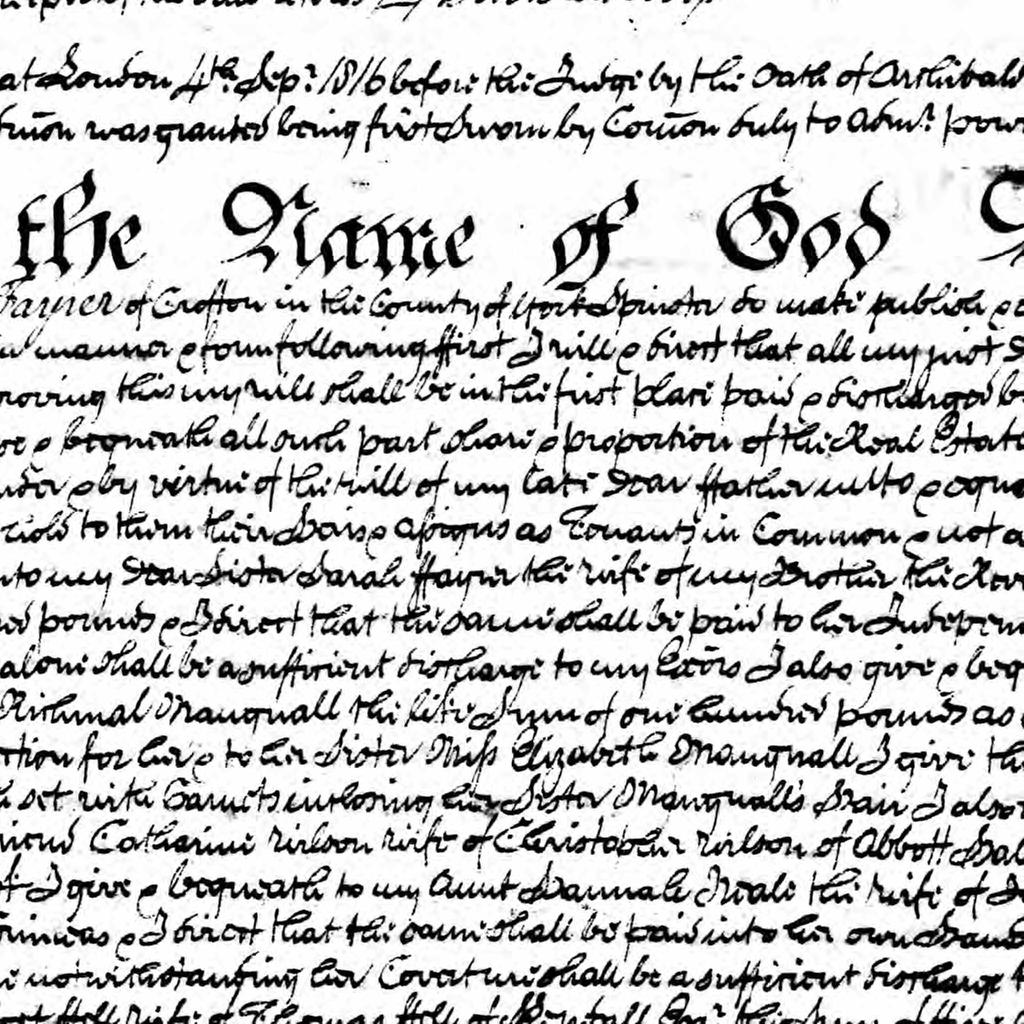 at London 4th. Sepr. 1816 before the Judge by the Oath of Archibald
was granted being first Sworn by Com̃on duly to Admr. pow
the Name of God
Fayrer of Crofton in the County of York Spinster do make publish &
manner & form following ffirst I will & direct that all my just
proving this my will shall be in the first place paid & discharged
& bequeath all such part share & proportion of the Real Estate
under & by virtue of the will of my late Dear ffather unto & equ
to them their Heirs & assigns as Tenants in Common & not a
unto my Dear Sister Sarah ffayrer the wife of my Brother the Rev
pounds & I direct that the same shall be paid to her Indepen
alone shall be a sufficient discharge to my Exõrs I also give & beq
Richmal Mangnall the like Sum of one hundred pounds as
for her & to her Sister Miss Elizabeth Mangnall I give th
set with Garnets inclosing her Sister Mangnall's Hair I also
Catharine Wilson wife of Christopher Wilson of Abbott Hal
I give & bequeath to my Aunt Hannah Neale the wife of
& I direct that the same shall be paid into her own Hand
notwithstanding her Coverture shall be a sufficient discharge
wife of Thomas of Esqr. the Sum of